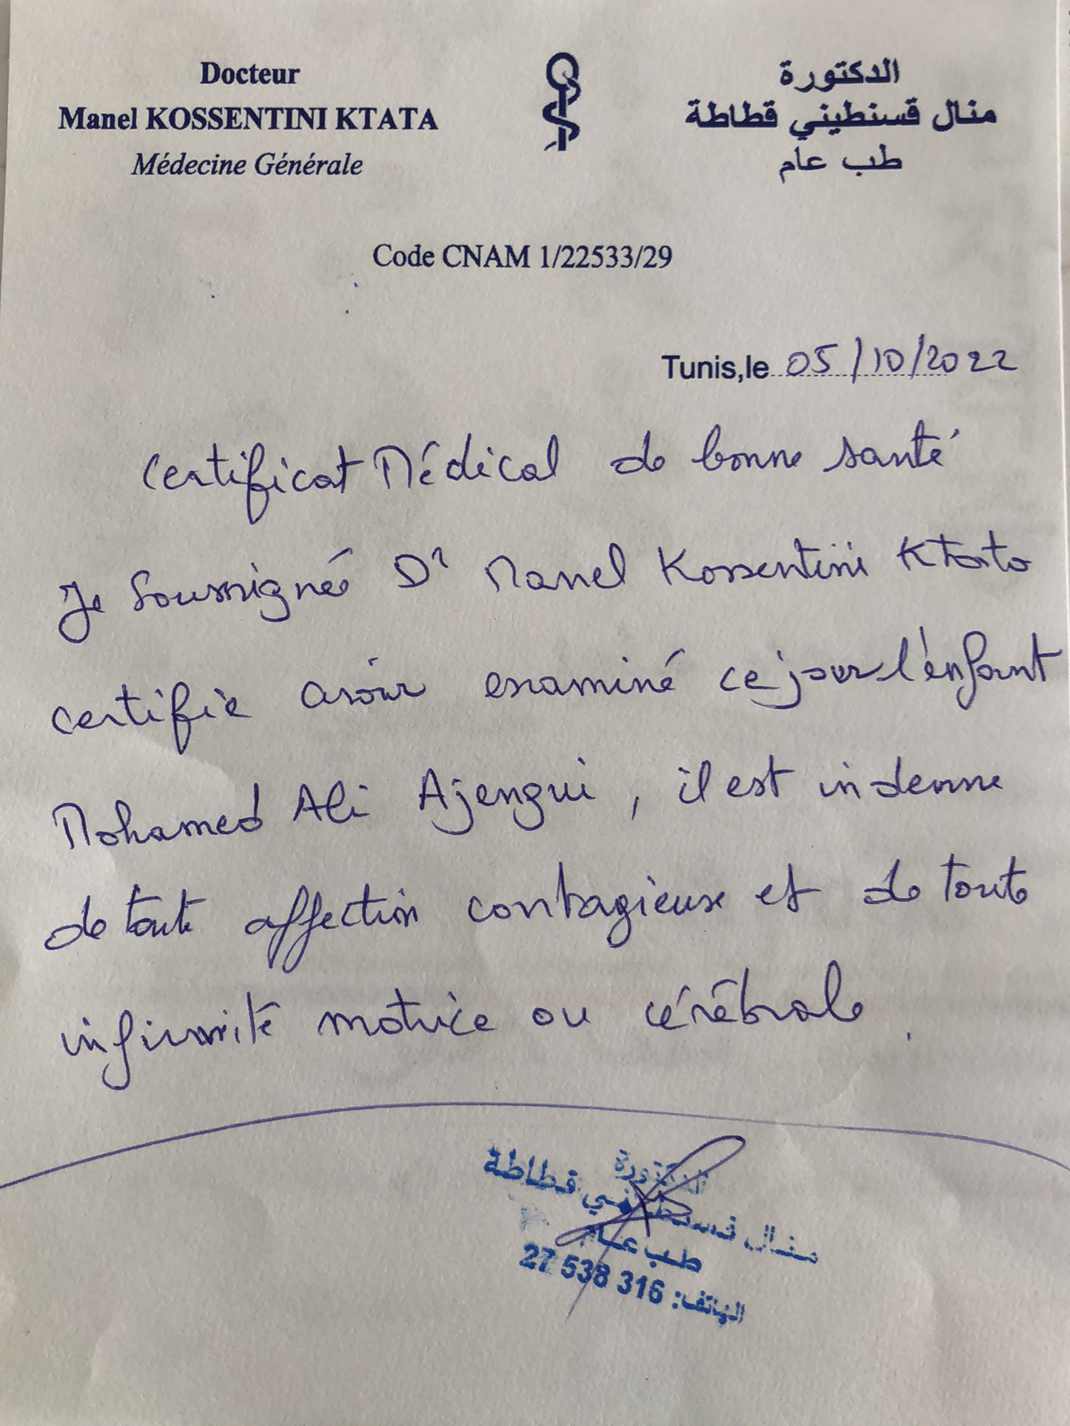 Docteur
Manel KOSSENTINI KTATA
Médecine Générale
الدكتورة
منال قسنطيني قطاطة
طب عام
Code CNAM 1/22533/29
Tunis,le 05/10/2022
Certificat Médical de bonne santé
Je Soussigné Dr Manel Kossentini Ktata
certifie avoir examiné ce jour l'enfant
Mohamed Ali Ajengui, il est indemne
de toute affection contagieuse et de toute
infirmité motrice ou cérébrale.
الدكتورة
منال قسنطيني قطاطة
طب عام
الهاتف: 27 538 316